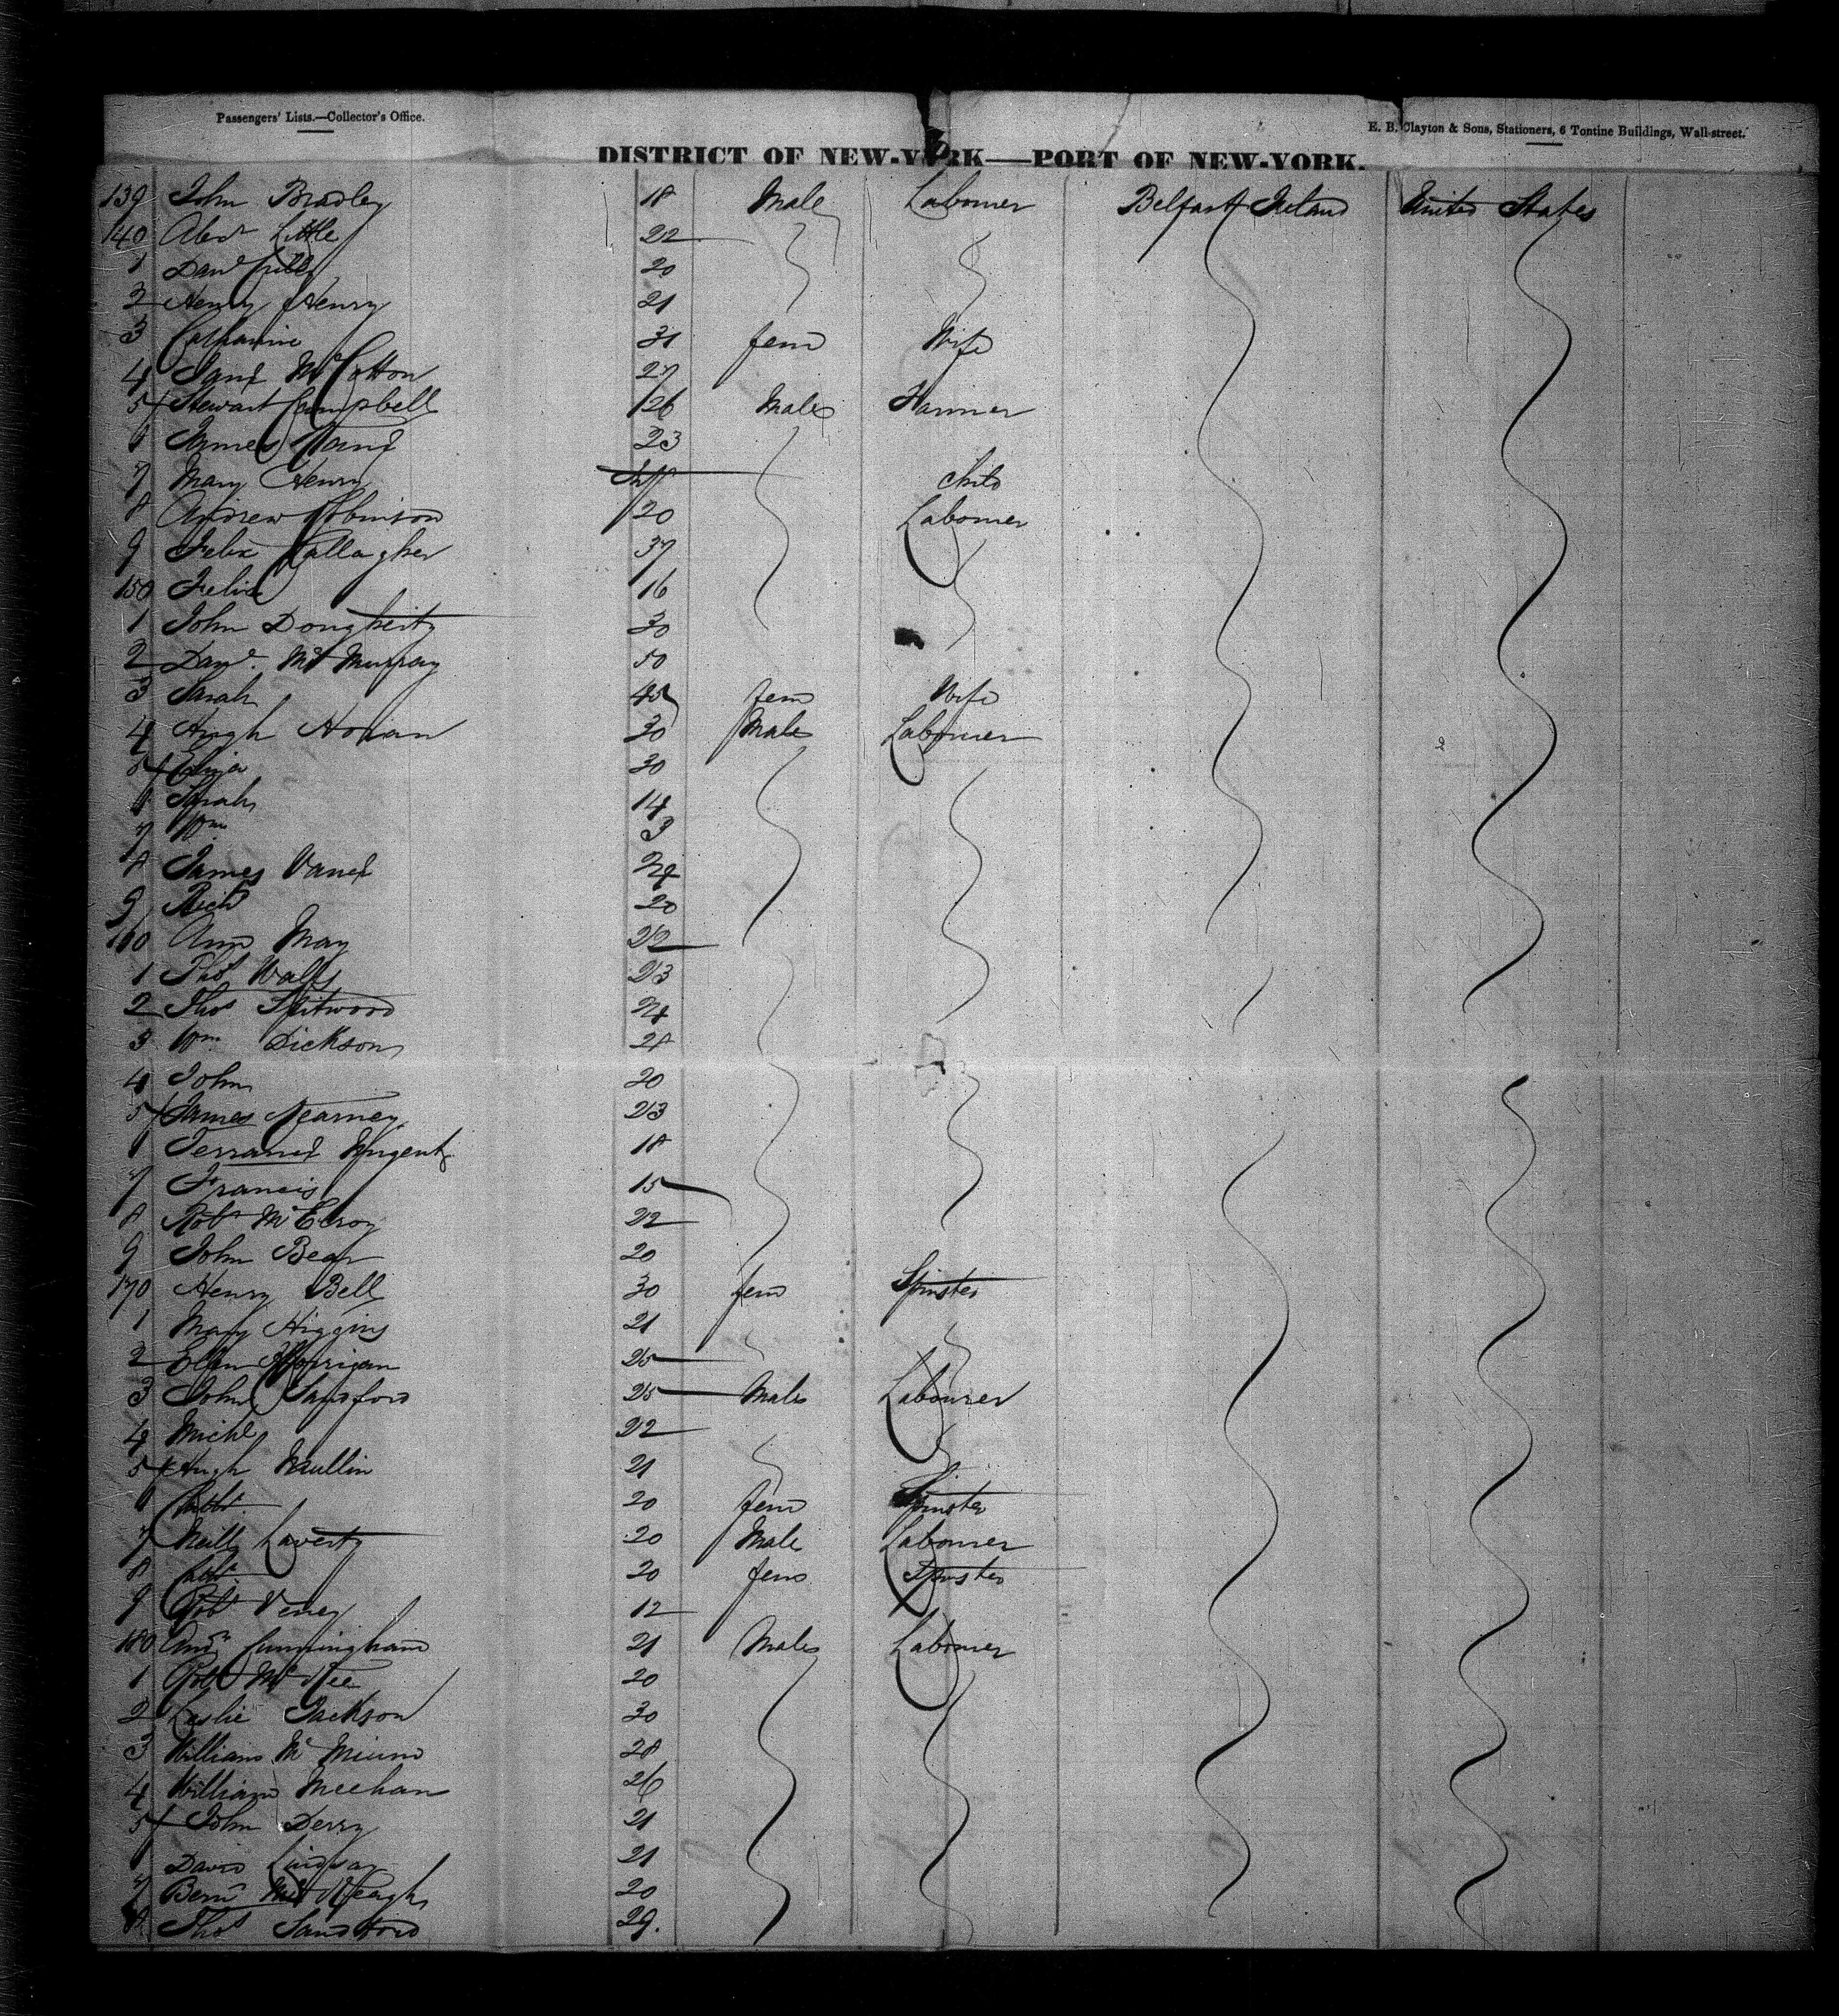 Passengers' Lists.—Collector's Office.
E. B. Clayton & Sons, Stationers, 6 Tontine Buildings, Wall-street.
DISTRICT OF NEW-YORK—PORT OF NEW-YORK.
139 John Bradley 18 Male Labourer Belfast Ireland United States
140 Alexr Little 22
1 Danl 20
2 Henry Henry 21
3 Catharine 31 fem Wife
4 Jane McCotton 27
5 Stewart Campbell 26 Males Farmer
6 James 23
7 Mary Henry Inft Child
8 Andrew Robinson 20 Labourer
9 Felix Gallagher 37
150 Felix 16
1 John Dougherty 30
2 Danl. McMurray 50
3 Sarah 45 fem Wife
4 Hugh 30 Male Labourer
5 Eliza 30
6 Sarah 14
7 Wm 3
8 James 24
9 Richd 20
160 Ann May 22
1 Thos Watts 23
2 Thos 24
3 Wm Dickson 28
4 John 20
5 James Kearney 23
6 Terrance Nugent 18
7 Francis 15
8 Robt McElroy 22
9 John Bear 20
170 Henry Bell 30 fem Spinster
1 Mary Higgins 21
2 Ellen 25
3 John Sandford 25 Males Labourer
4 Michl 22
5 Hugh Mullin 21
6 Cathe 20 fem Spinster
7 Neill Laverty 20 Male Labourer
8 Cathe 20 fem Spinster
9 Robt 12
180 Andw Cunningham 21 Males Labourer
1 Robt McKee 20
2 Leslie Jackson 30
3 William Mc 28
4 William Meehan 26
5 John Derry 21
6 David Lindsay 21
7 Bernd McVeagh 20
8 Thos Sandford 29.